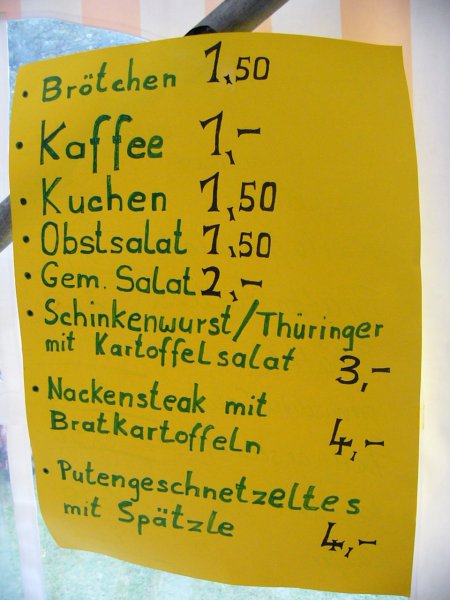 · Brötchen 1,50
· Kaffee 1,-
· Kuchen 1,50
· Obstsalat 1,50
· Gem. Salat 2,-
· Schinkenwurst/Thüringer
mit Kartoffelsalat 3,-
· Nackensteak mit
Bratkartoffeln 4,-
· Putengeschnetzeltes
mit Spätzle 4,-